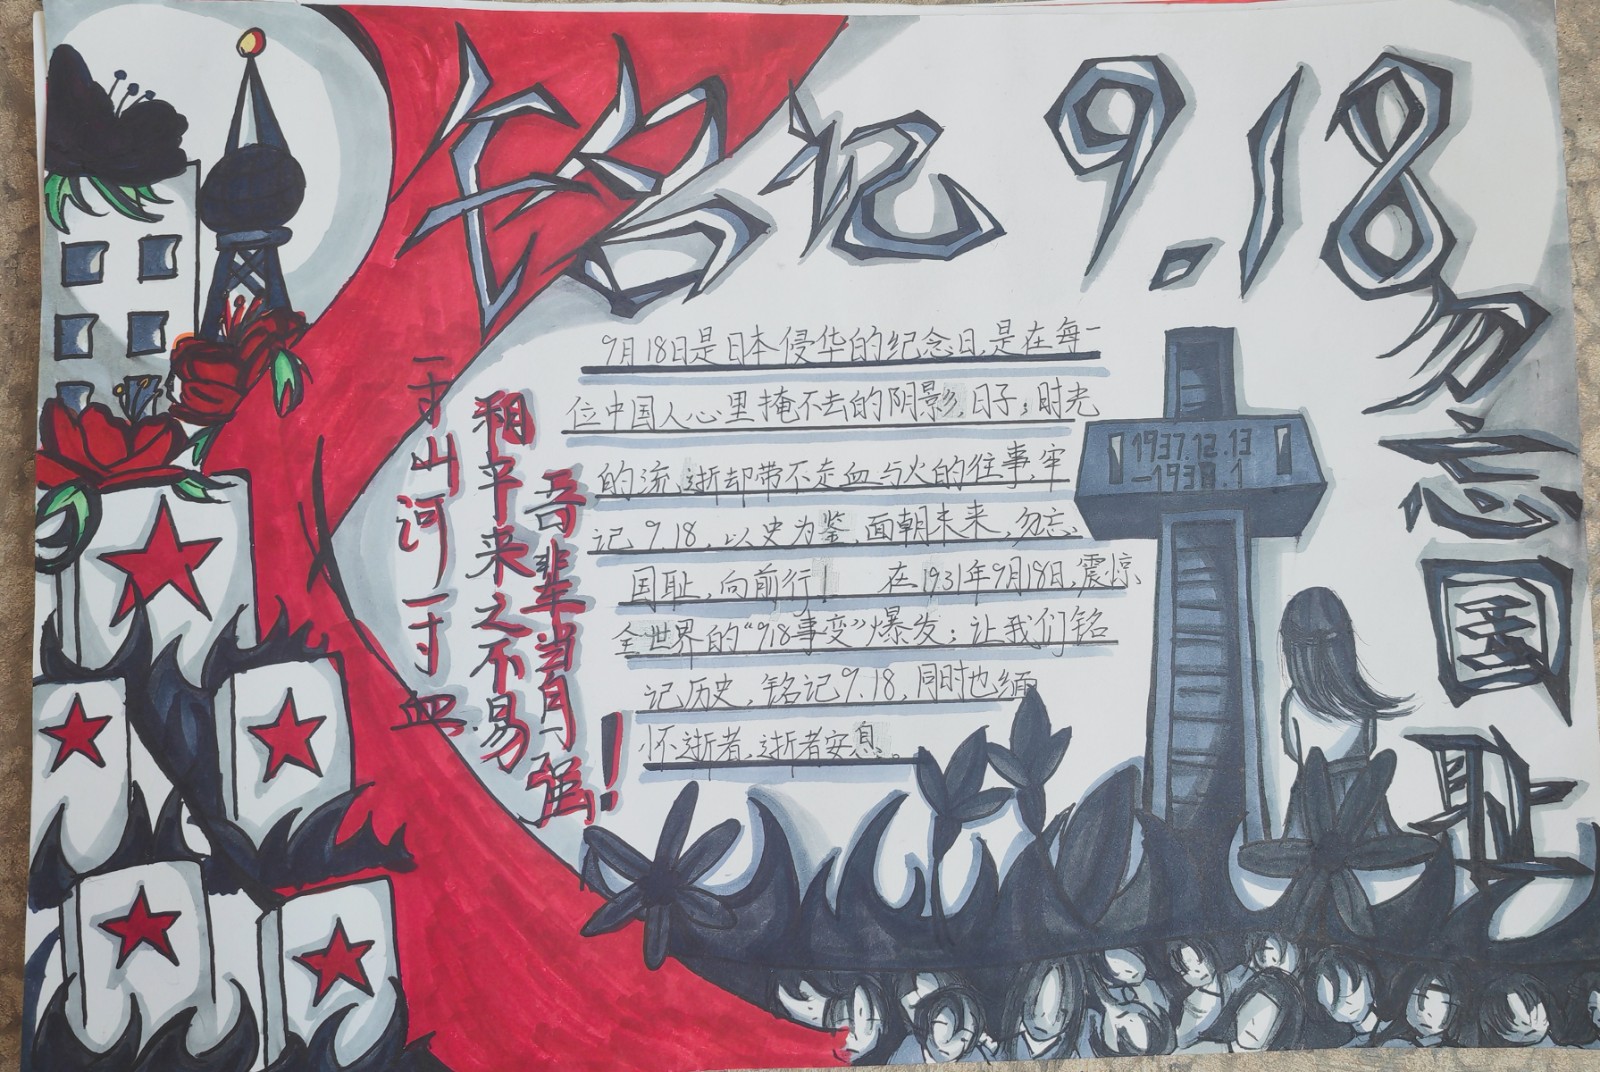 铭记9.18
勿忘国耻
9月18日是日本侵华的纪念日,是在每一
位中国人心里掩不去的阴影日子;时光
的流逝却带不走血与火的往事,牢
记9.18,以史为鉴,面朝未来,勿忘
国耻,向前行! 在1931年9月18日,震惊
全世界的“9.18事变”爆发;让我们铭
记历史,铭记9.18,同时也缅
怀逝者,逝者安息。
一寸山河一寸血
和平来之不易
吾辈当自强!
1937.12.13
-1938.1